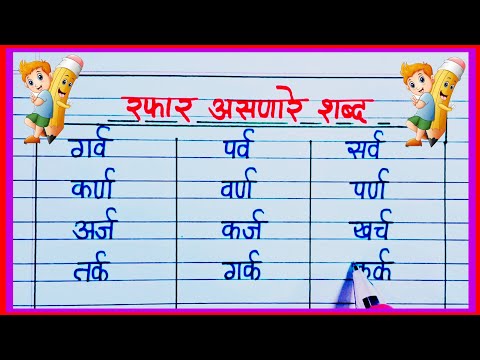 रफार असणारे शब्द
गर्व पर्व सर्व
कर्ण वर्ण पर्ण
अर्ज कर्ज खर्च
तर्क गर्क कर्क